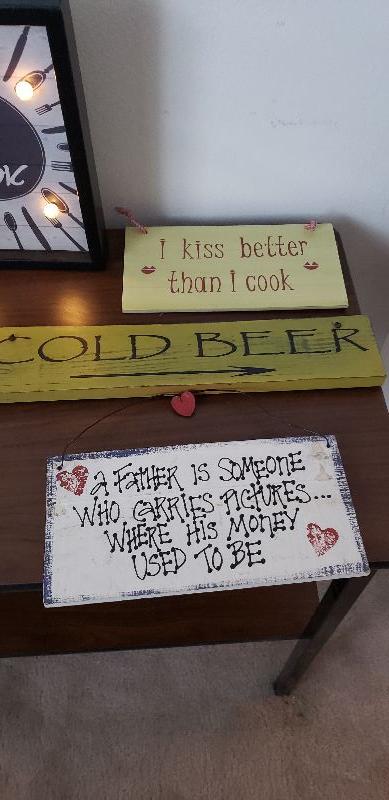 I kiss better
than I cook
COLD BEER
A FATHER IS SOMEONE
WHO CARRIES PICTURES...
WHERE HIS MONEY
USED TO BE